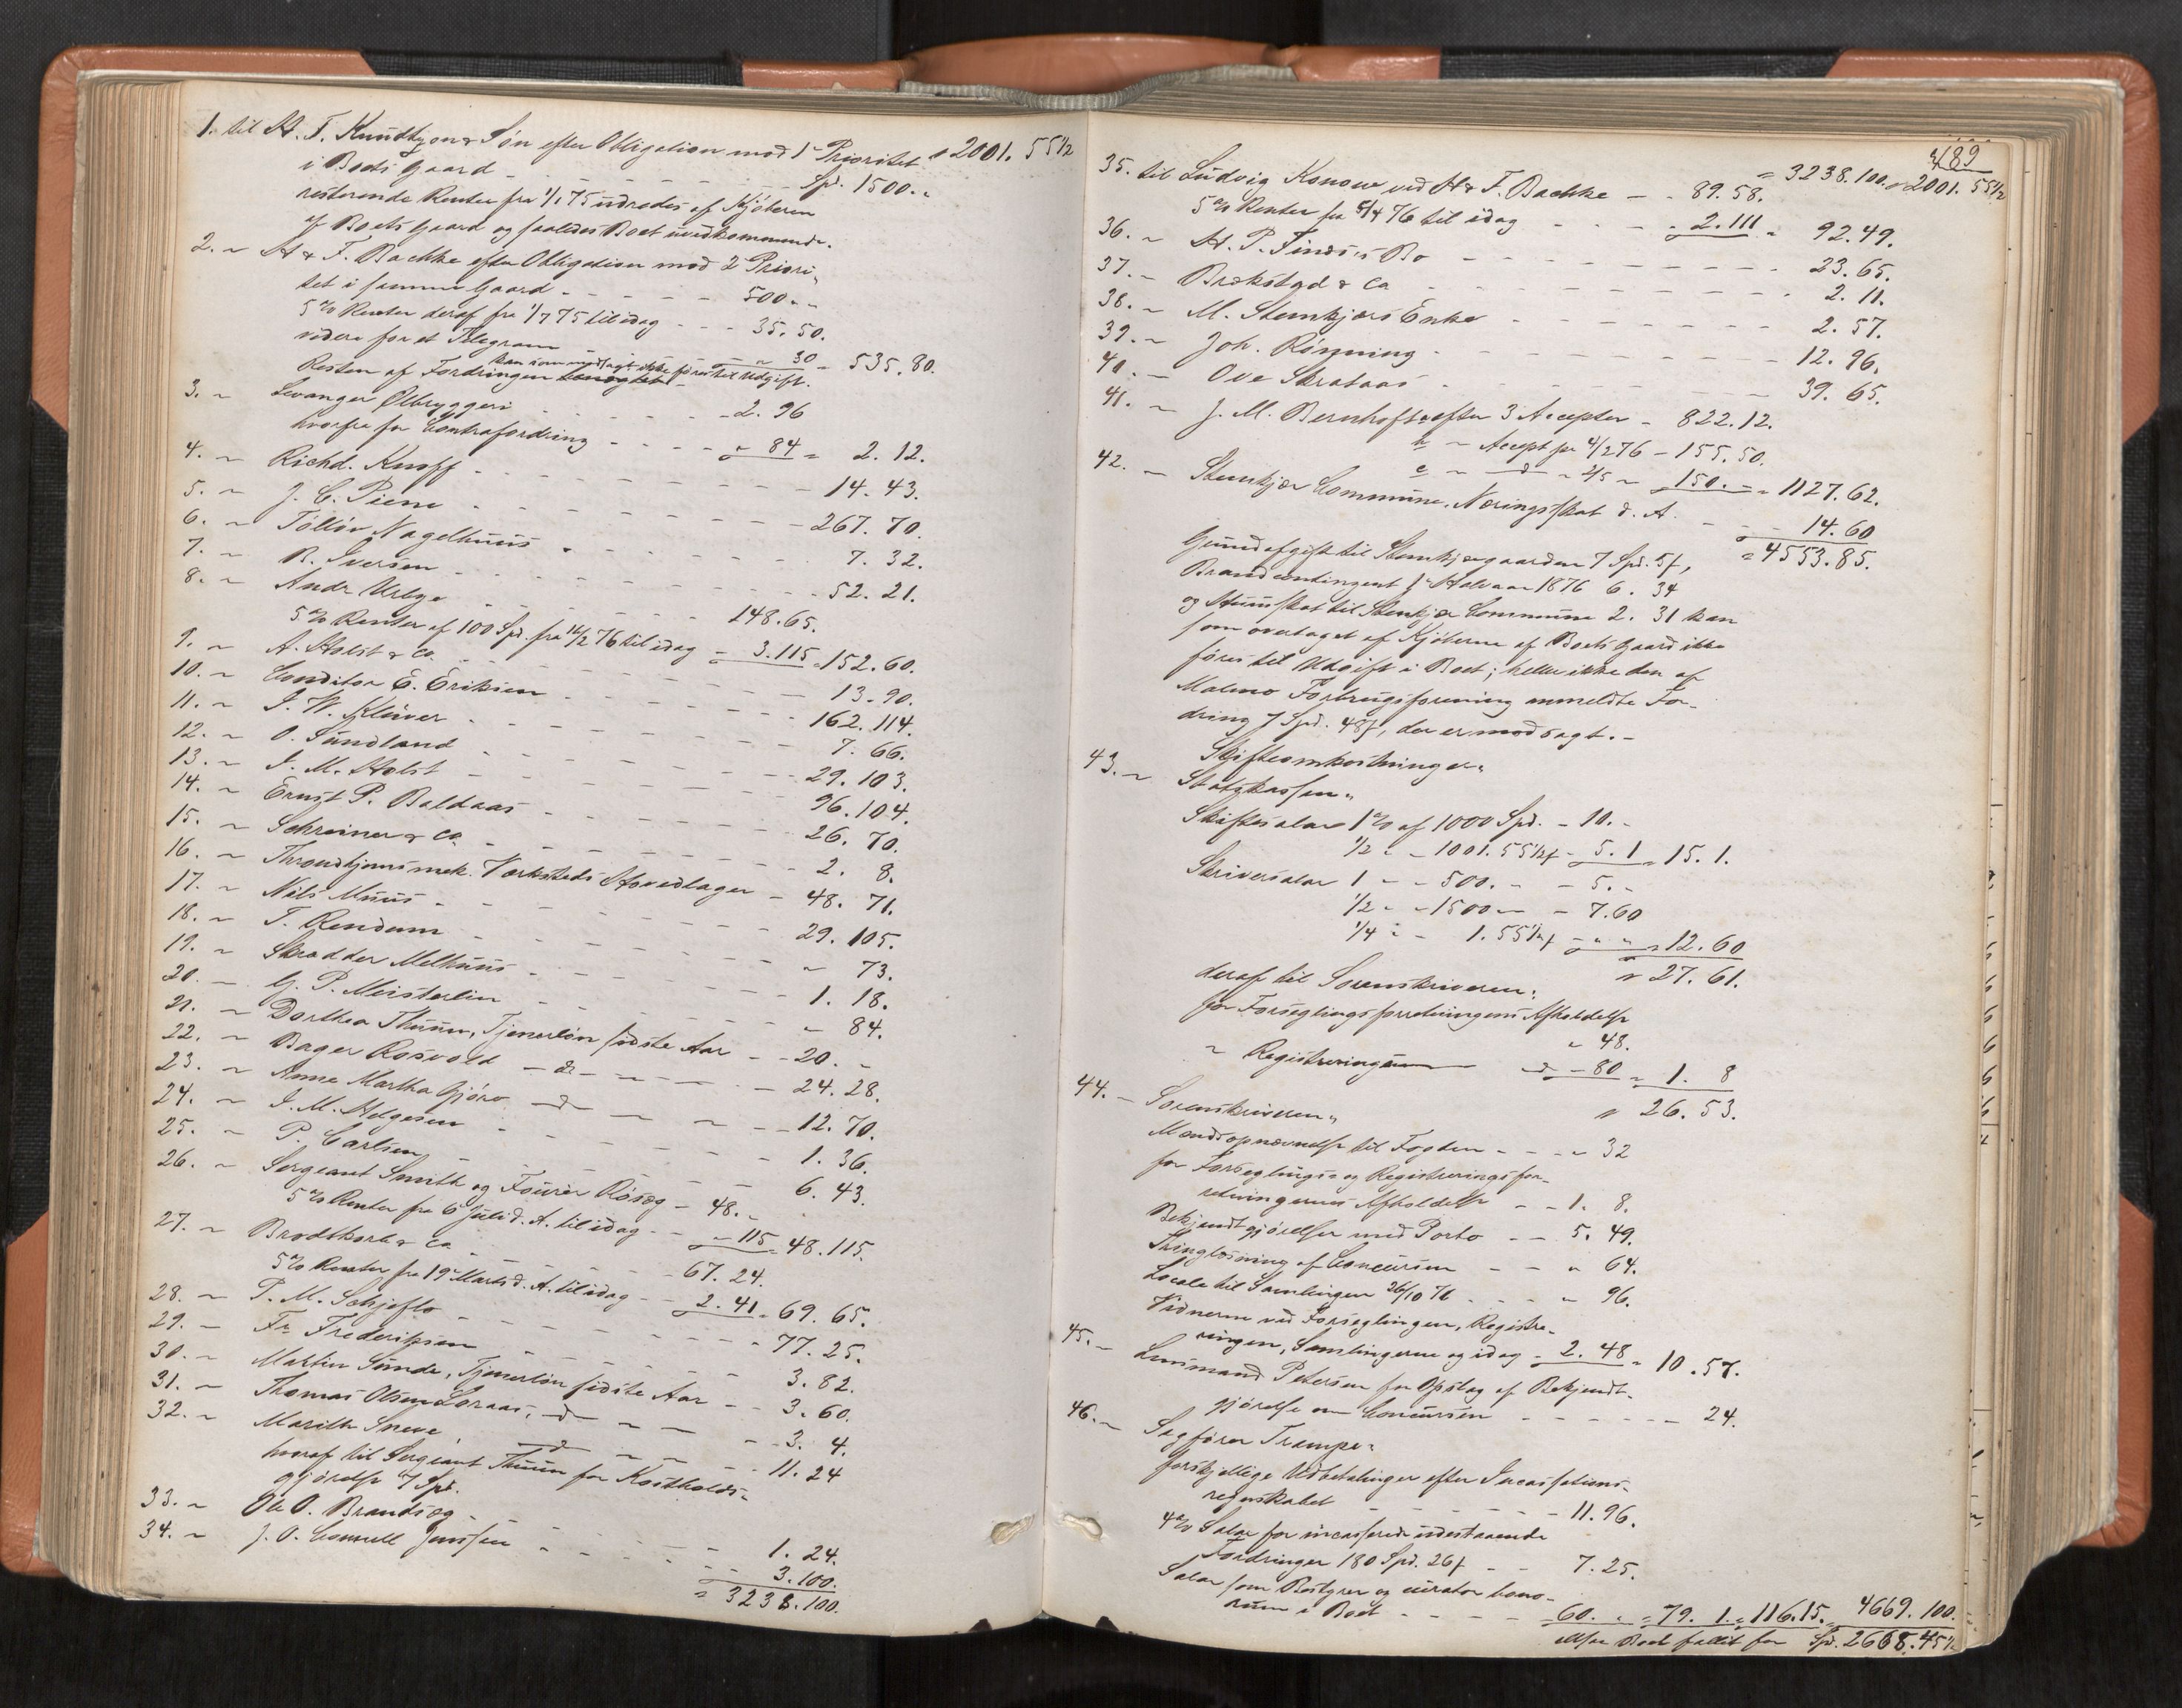 1. til H. F. Knudtzon & Søn efter Obligation mod 1' Prioritet " 2001. 55 1/2
i Boets Gaard - - - - Spd. 1500. "
resterende Renter fra 1/1 75 udredes af Kjøberen
af Boets Gaard og saaledes Boet uvedkommende.
2. " H & F. Bachke efter Obligation mod 2' Priori-
tet i samme Gaard - - - - 500. "
5 % Renter deraf fra 1/7 75 til idag - - - 35. 50.
videre for et Telegram - - - " 30 = 535. 80.
Resten af Fordringen kan som modsagt ikke føres til Udgift.
3. " Levanger Ølbryggeri - - - - 2. 96
hvorfra for Contrafordring - - - - " 84 = 2. 12.
4. " Richd. Knoff - - - - 14. 43.
5. " J. C. Piene - - - - 267. 70.
6. " Tölløv Nagelhuus - - - - 7. 32.
7. " B. Iversen - - - - 52. 21.
8. " Andr Urbye - - - - 148. 65.
5 % Renter af 100 Spd. fra 16/2 76 til idag - 3. 115 = 152. 60.
9. " A. Holst & Co. - - - - 13. 90.
10. " Conditor E. Eriksen - - - - 162. 114.
11. " I. W. Klüver - - - - 7. 66.
12. " O. Sundland - - - - 29. 103.
13. " I. M. Holst - - - - 96. 104.
14. " Ernst P. Baldaas - - - - 26. 70.
15. " Schreiner & Co. - - - - 2. 8.
16. " Throndhjems mek. Værksteds Hovedlager - 48. 71.
17. " Nils Muus - - - - 29. 105.
18. " T. Rendum - - - - " 73.
19. " Skrædder Melhuus - - - - 1. 18.
20. " G. P. Meisterlin - - - - " 84.
21. " Dorthea Thuun, Tjenerløn sidste Aar - - 20. "
22. " Bager Rosvold - do - - - - 24. 28.
23. " Anne Martha Gjörv - do - - - - 12. 70.
24. " I. M. Helgesen - - - - 1. 36.
25. " P. Carlsen - - - - 6. 43.
26. " Sergeant Smith og Fourer Rösæg - 48. "
5 % Renter fra 6 Juli d. A. til idag - - " 115 = 48. 115.
27. " Brodtkorb & Co - - - - 67. 24.
5 % Renter fra 19' Marts d. A. til idag - 2. 41 = 69. 65.
28. " P. M. Schjeflo - - - - 77. 25.
29. " Fr Frederiksen - - - - 3. 82.
30. " Martin Sunde, Tjenerløn sidste Aar - - 3. 60.
31. " Thomas Olsen Loraas, do - - - - 3. 4.
32. " Marith Sneve, do - - - - 11. 24
hvoraf til Sergeant Thuun for Kostholds-
gjørelse 7 Spd.
33. " Ole O. Brandsæg - - - - 1. 24.
34. " J. O. Conrell Jenssen - - - - 3. 100.
= 3238. 100.
489
= 3238. 100. " 2001. 55 1/2
35. til Ludvig Konow ved H & F. Bachke - - 89. 58.
5 % Renter fra 5/4 76 til idag - - - 2. 111 = 92. 49.
36. " H. P. Finds's Bo - - - - 23. 65.
37. " Brækstad & Co - - - - 2. 11.
38. " M. Steenkjærs Enke - - - - 2. 57.
39. " Joh. Rösning - - - - 12. 96.
40. " Ove Skrataas - - - - 39. 65.
41. " J. M. Bernhoft a efter 3 Accepter - 822. 12.
b " Accept pr 4/2 76 - 155. 50.
c " do " 2/5 " 150. " = 1127. 62.
42. " Stenkjær Commune. Næringsskat d. A. - - - 14. 60
= 4553. 85.
Grundafgift til Steenkjærgaarden 7 Spd. 5 f,
Brandcontingent 1' Halvaar 1876 6. 34
og Huusskat til Stenkjær Commune 2. 31 kan
som overtaget af Kjøberen af Boets Gaard ikke
føres til Udgift i Boet; heller ikke den af
Malmo Forbrugsforening anmeldte For-
dring 7 Spd. 48 f, der er modsagt. -
Skifteomkostninger:
43. " Statskassen:
Skiftesalar 1 % af 1000 Spd. - 10. "
1/2 " - 1001. 55 1/2 f - 5. 1 = 15. 1.
Skriversalar 1 " - 500. " - 5. "
1/2 " - 1500 " - 7. 60
1/4 " - 1. 55 1/2 f - " " = 12. 60
" 27. 61.
deraf til Sorenskriveren:
for Forseglingsforretningens Afholdelse
" 48.
" Registreringens do " 80 = 1. 8
" 26. 53.
44. " Sorenskriveren:
Mandsopnævnelse til Fogden - - - " 32
for Forseglings- og Registreringsfor-
retningernes Afholdelse - - 1. 8.
Bekjendtgjörelser med Porto - - 5. 49.
Thinglæsning af Concursen - - " 64.
Locale til Samlingen 26/10 76 - - - " 96.
Vidnerne ved Forseglingen, Registre-
ringen, Samlingerne og idag - 2. 48 = 10. 57.
45. " Lensmand Petersen for Opslag af Bekjendt-
gjørelse om Concursen - - - - 24.
46. " Sagfører Trampe:
forskjellige Udbetalinger efter Incassations-
regnskabet - - - - 11. 96.
4 % Salar for incasserede udestaaende
Fordringer 180 Spd. 26 f - - 7. 25.
Salar som Bestyrer og curator bono-
rum i Boet - - - - 60. " = 79. 1. = 116. 15. = 4669. 100.
altsaa Boet fallit for Spd. 2668. 45 1/2